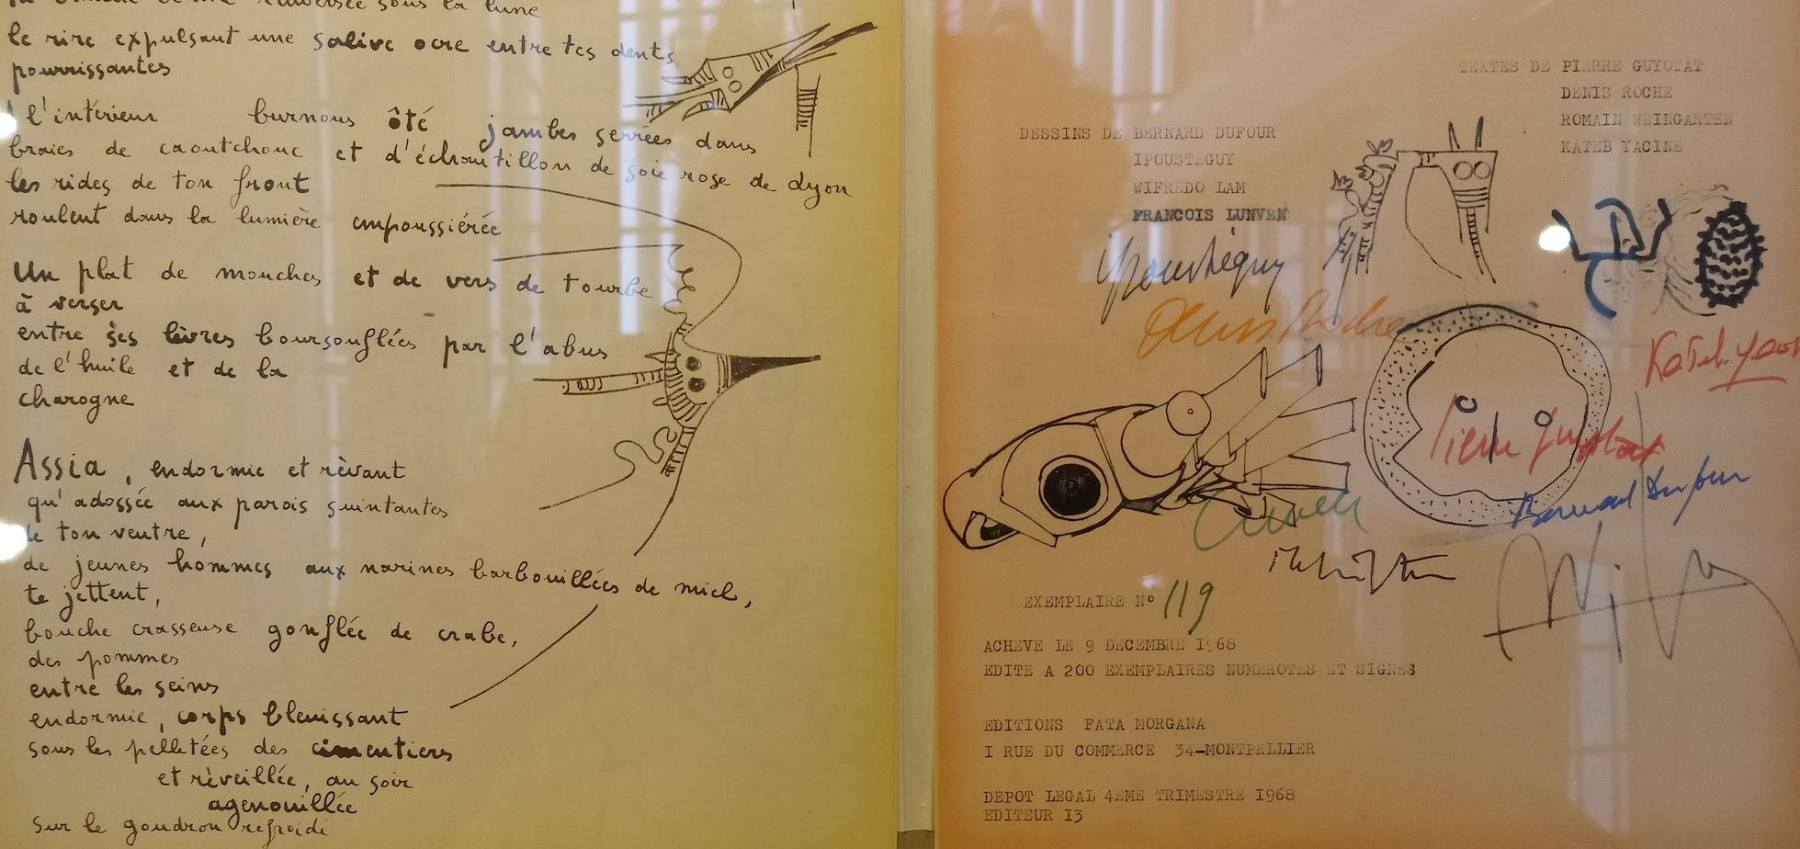 sous la lune
le rire expulsant une salive ocre entre tes dents
pourrissantes
l'intérieur burnous ôté jambes serrées dans
braies de caoutchouc et d'échantillon de soie rose de Lyon
les rides de ton front
roulent dans la lumière empoussiérée
Un plat de mouches et de vers de tourbe
à verser
entre ses lèvres boursouflées par l'abus
de l'huile et de la
charogne
Assia, endormie et rêvant
qu'adossée aux parois suintantes
de ton ventre,
de jeunes hommes aux narines barbouillées de miel,
te jettent,
bouche crasseuse gonflée de crabe,
des pommes
entre les seins
endormie, corps bleuissant
sous les pelletées des cimentiers
et réveillée, au soir
agenouillée
sur le goudron refroidi
TEXTES DE PIERRE GUYOTAT
DENIS ROCHE
ROMAIN WEINGARTEN
KATEB YACINE
DESSINS DE BERNARD DUFOUR
IPOUSTEGUY
WIFREDO LAM
FRANCOIS LUNVEN
Ipousteguy
Denis Roche
Kateb Yacine
Pierre Guyotat
Bernard Dufour
Lunven
EXEMPLAIRE N° 119
ACHEVE LE 9 DECEMBRE 1968
EDITE A 200 EXEMPLAIRES NUMEROTES ET SIGNES
EDITIONS FATA MORGANA
I RUE DU COMMERCE 34-MONTPELLIER
DEPOT LEGAL 4EME TRIMESTRE 1968
EDITEUR 13